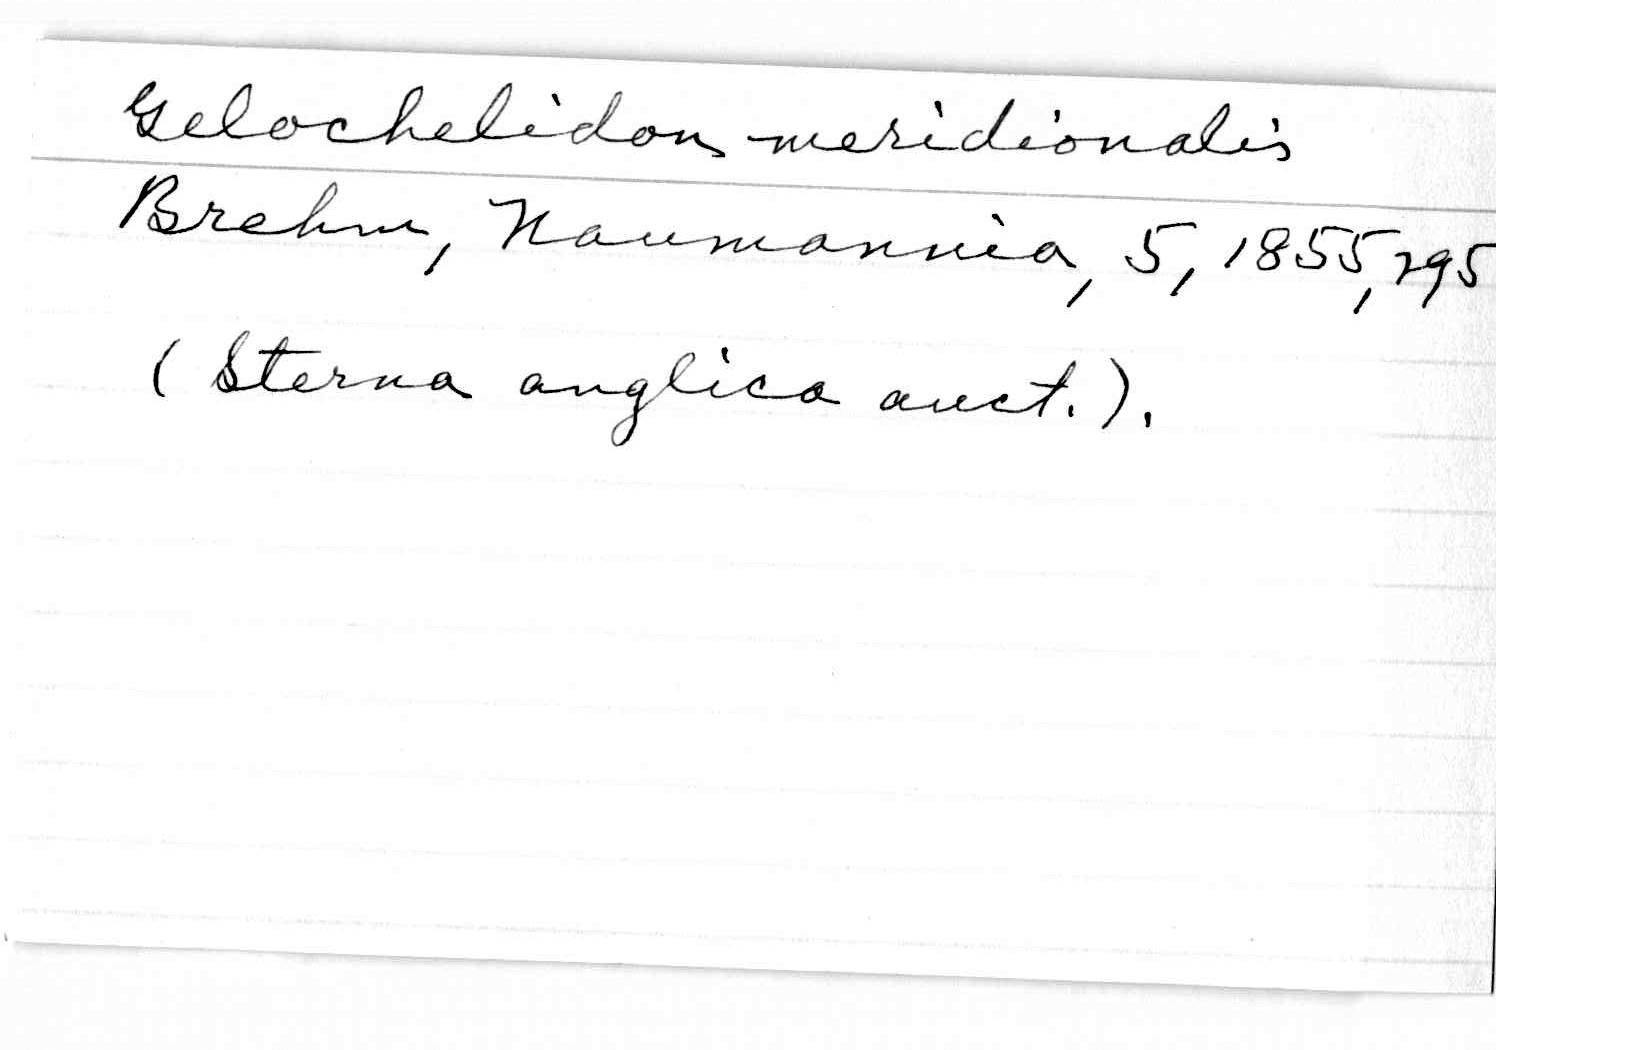 Gelochelidon meridionalis
Brehm, Naumannia, 5, 1855, 295
(Sterna anglica auct.).